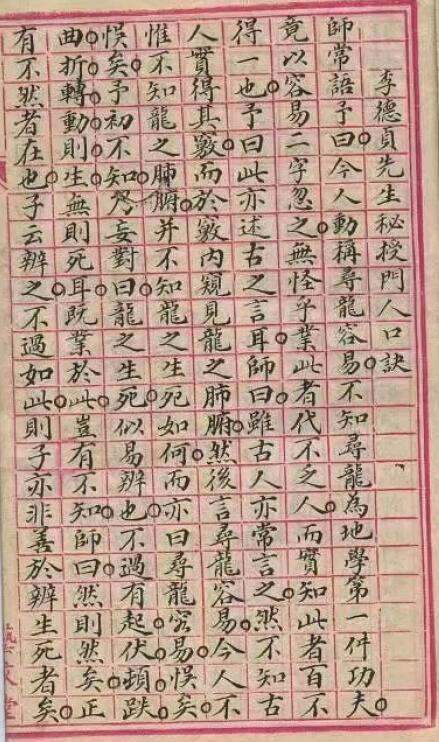 李德貞先生秘授門人口訣
師常語予曰。今人動稱尋龍容易。不知尋龍為地學第一件功夫。
竟以容易二字忽之。無怪乎業此者代不乏人。而實知此者百不
得一也。予曰此亦述古之言耳。師曰。雖古人亦常言之。然不知古
人實得其竅。而於竅內窺見龍之肺腑。然後言尋龍容易。今人不
惟不知龍之肺腑。并不知龍之生死如何。而亦曰尋龍容易。悞矣。
悞矣。予初不知。乃妄對曰。龍之生死。似易辨也。不過有起伏。頓跌。
曲。折。轉。動則。生。無則死耳。既業於此。豈有不知。師曰。然則然矣。正
有不然者在也。子云辨之。不過如此。則子亦非善於辨生死者矣。